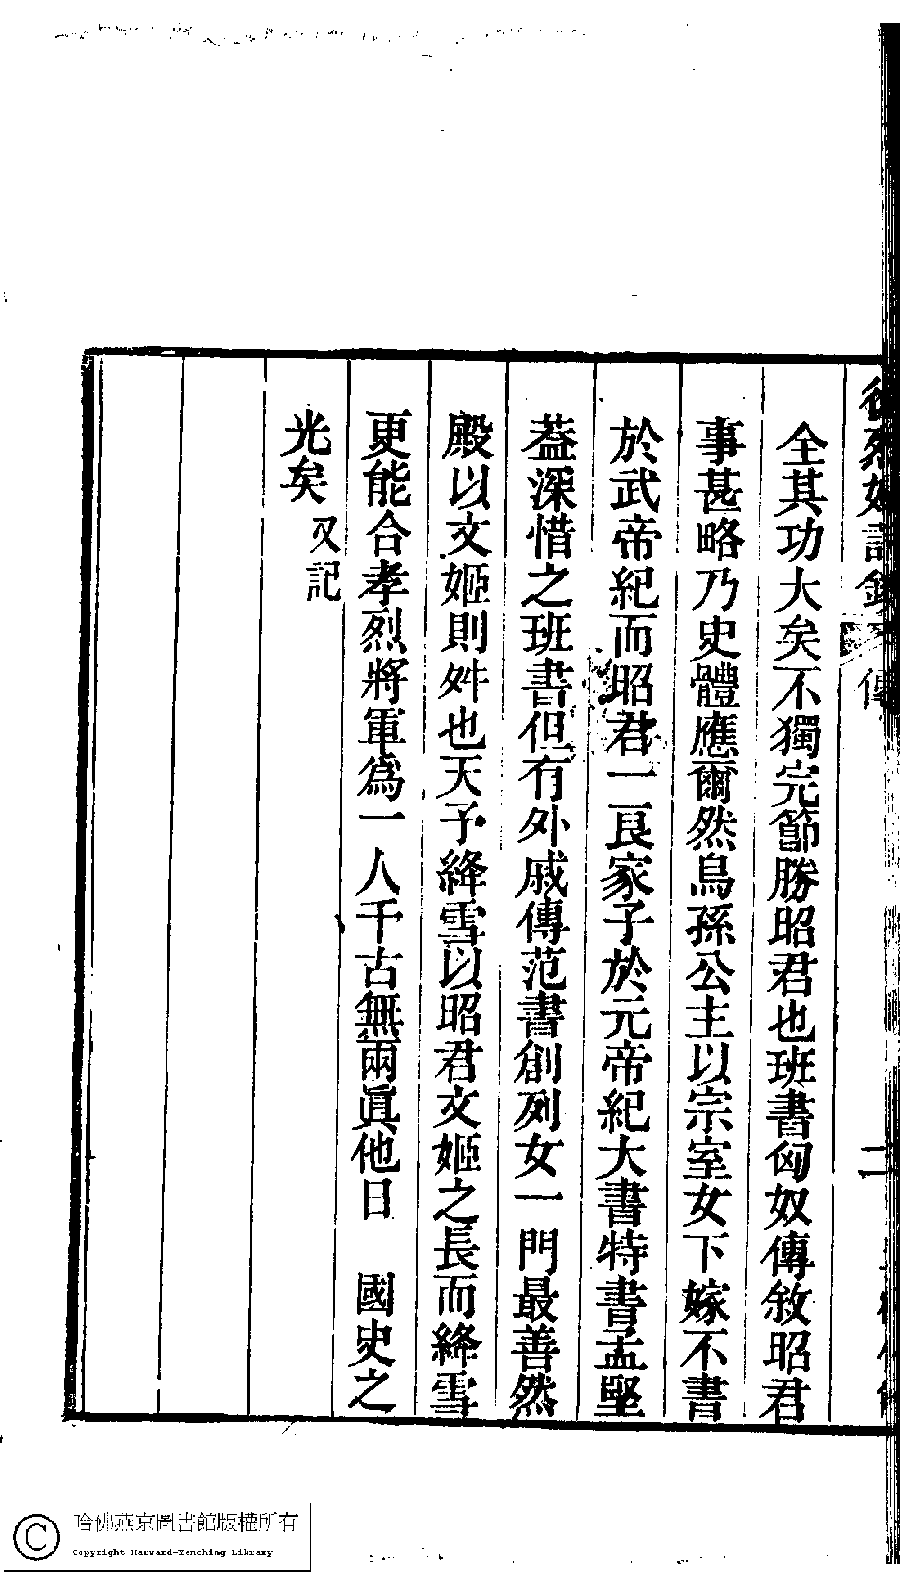 全其功大矣不獨完節勝昭君也班書匈奴傳敘昭君
事甚略乃史體應爾然烏孫公主以宗室女下嫁不書
於武帝紀而昭君一良家子於元帝紀大書特書孟堅
葢深惜之班書但有外戚傳范書創列女一門最善然
殿以文姬則舛也天子絳雪以昭君文姬之長而絳雪
更能合孝烈將軍爲一人千古無兩眞他日　國史之
光矣 又記
哈佛燕京圖書館版權所有
Copyright Harvard-Yenching Library